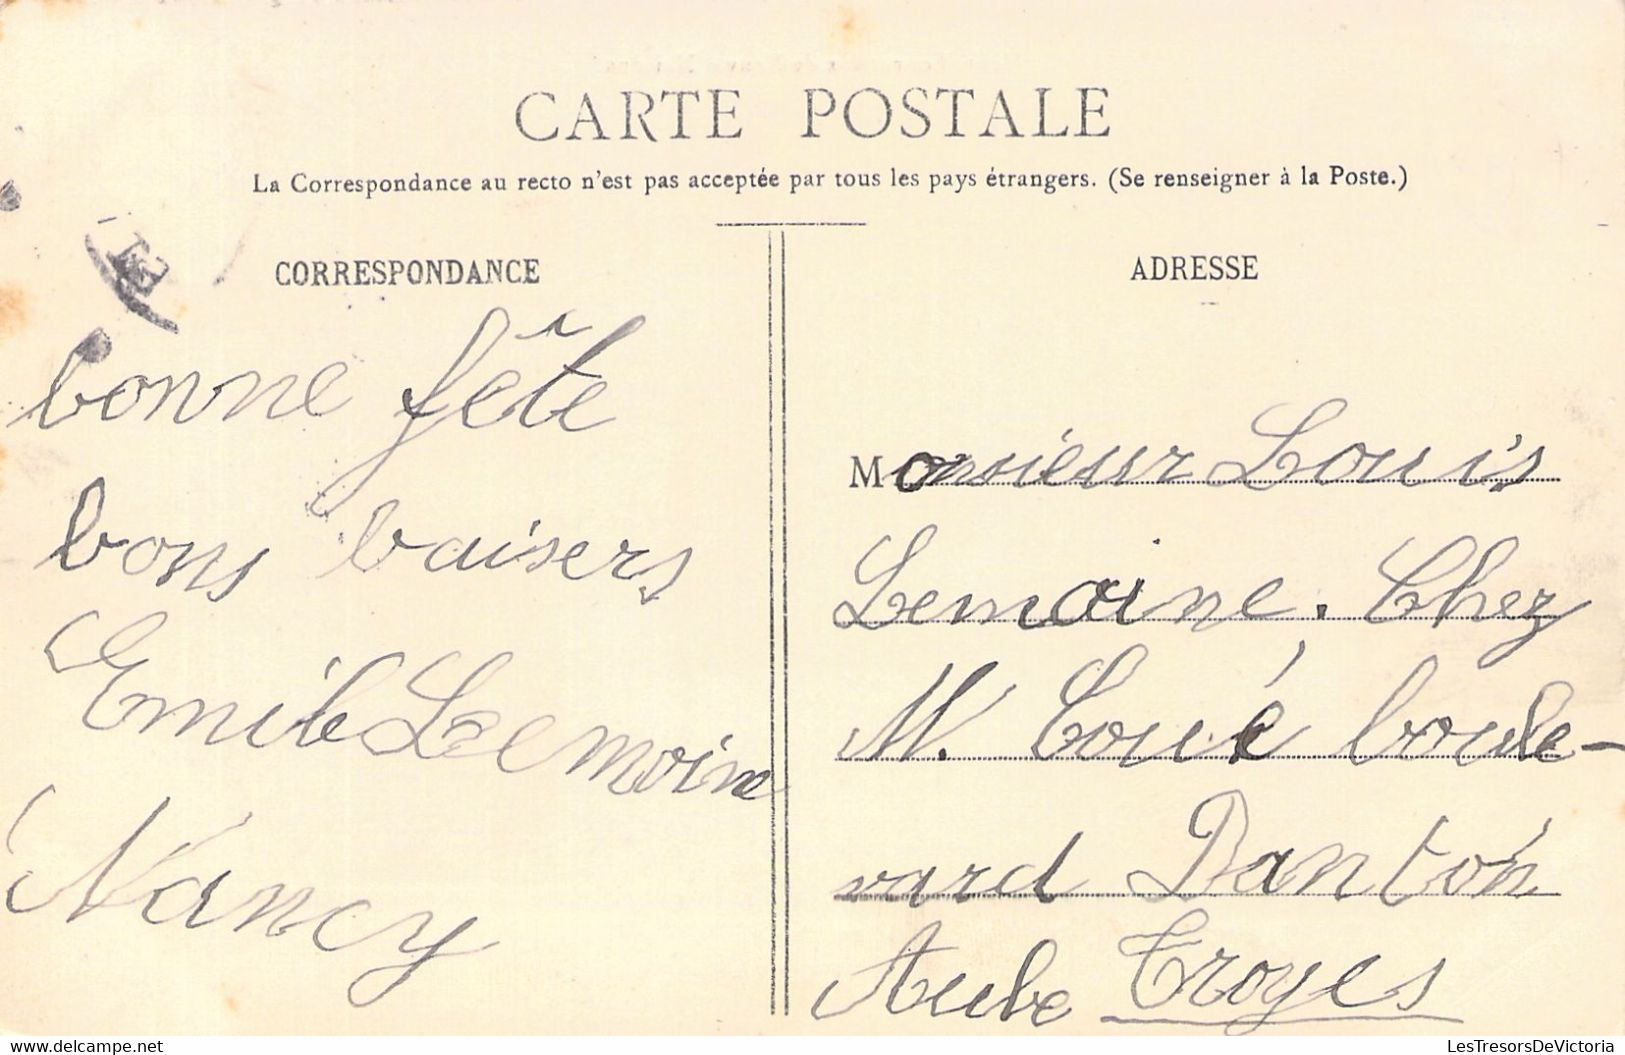 CARTE POSTALE
La Correspondance au recto n'est pas acceptée par tous les pays étrangers. (Se renseigner à la Poste.)
CORRESPONDANCE
bonne fête
bons baisers
Emile Lemoine
Nancy
ADRESSE
Monsieur Louis
Lemoine. Chez
M. Coué boule-
vard Danton
Aube Troyes
LesTresorsDeVictoria